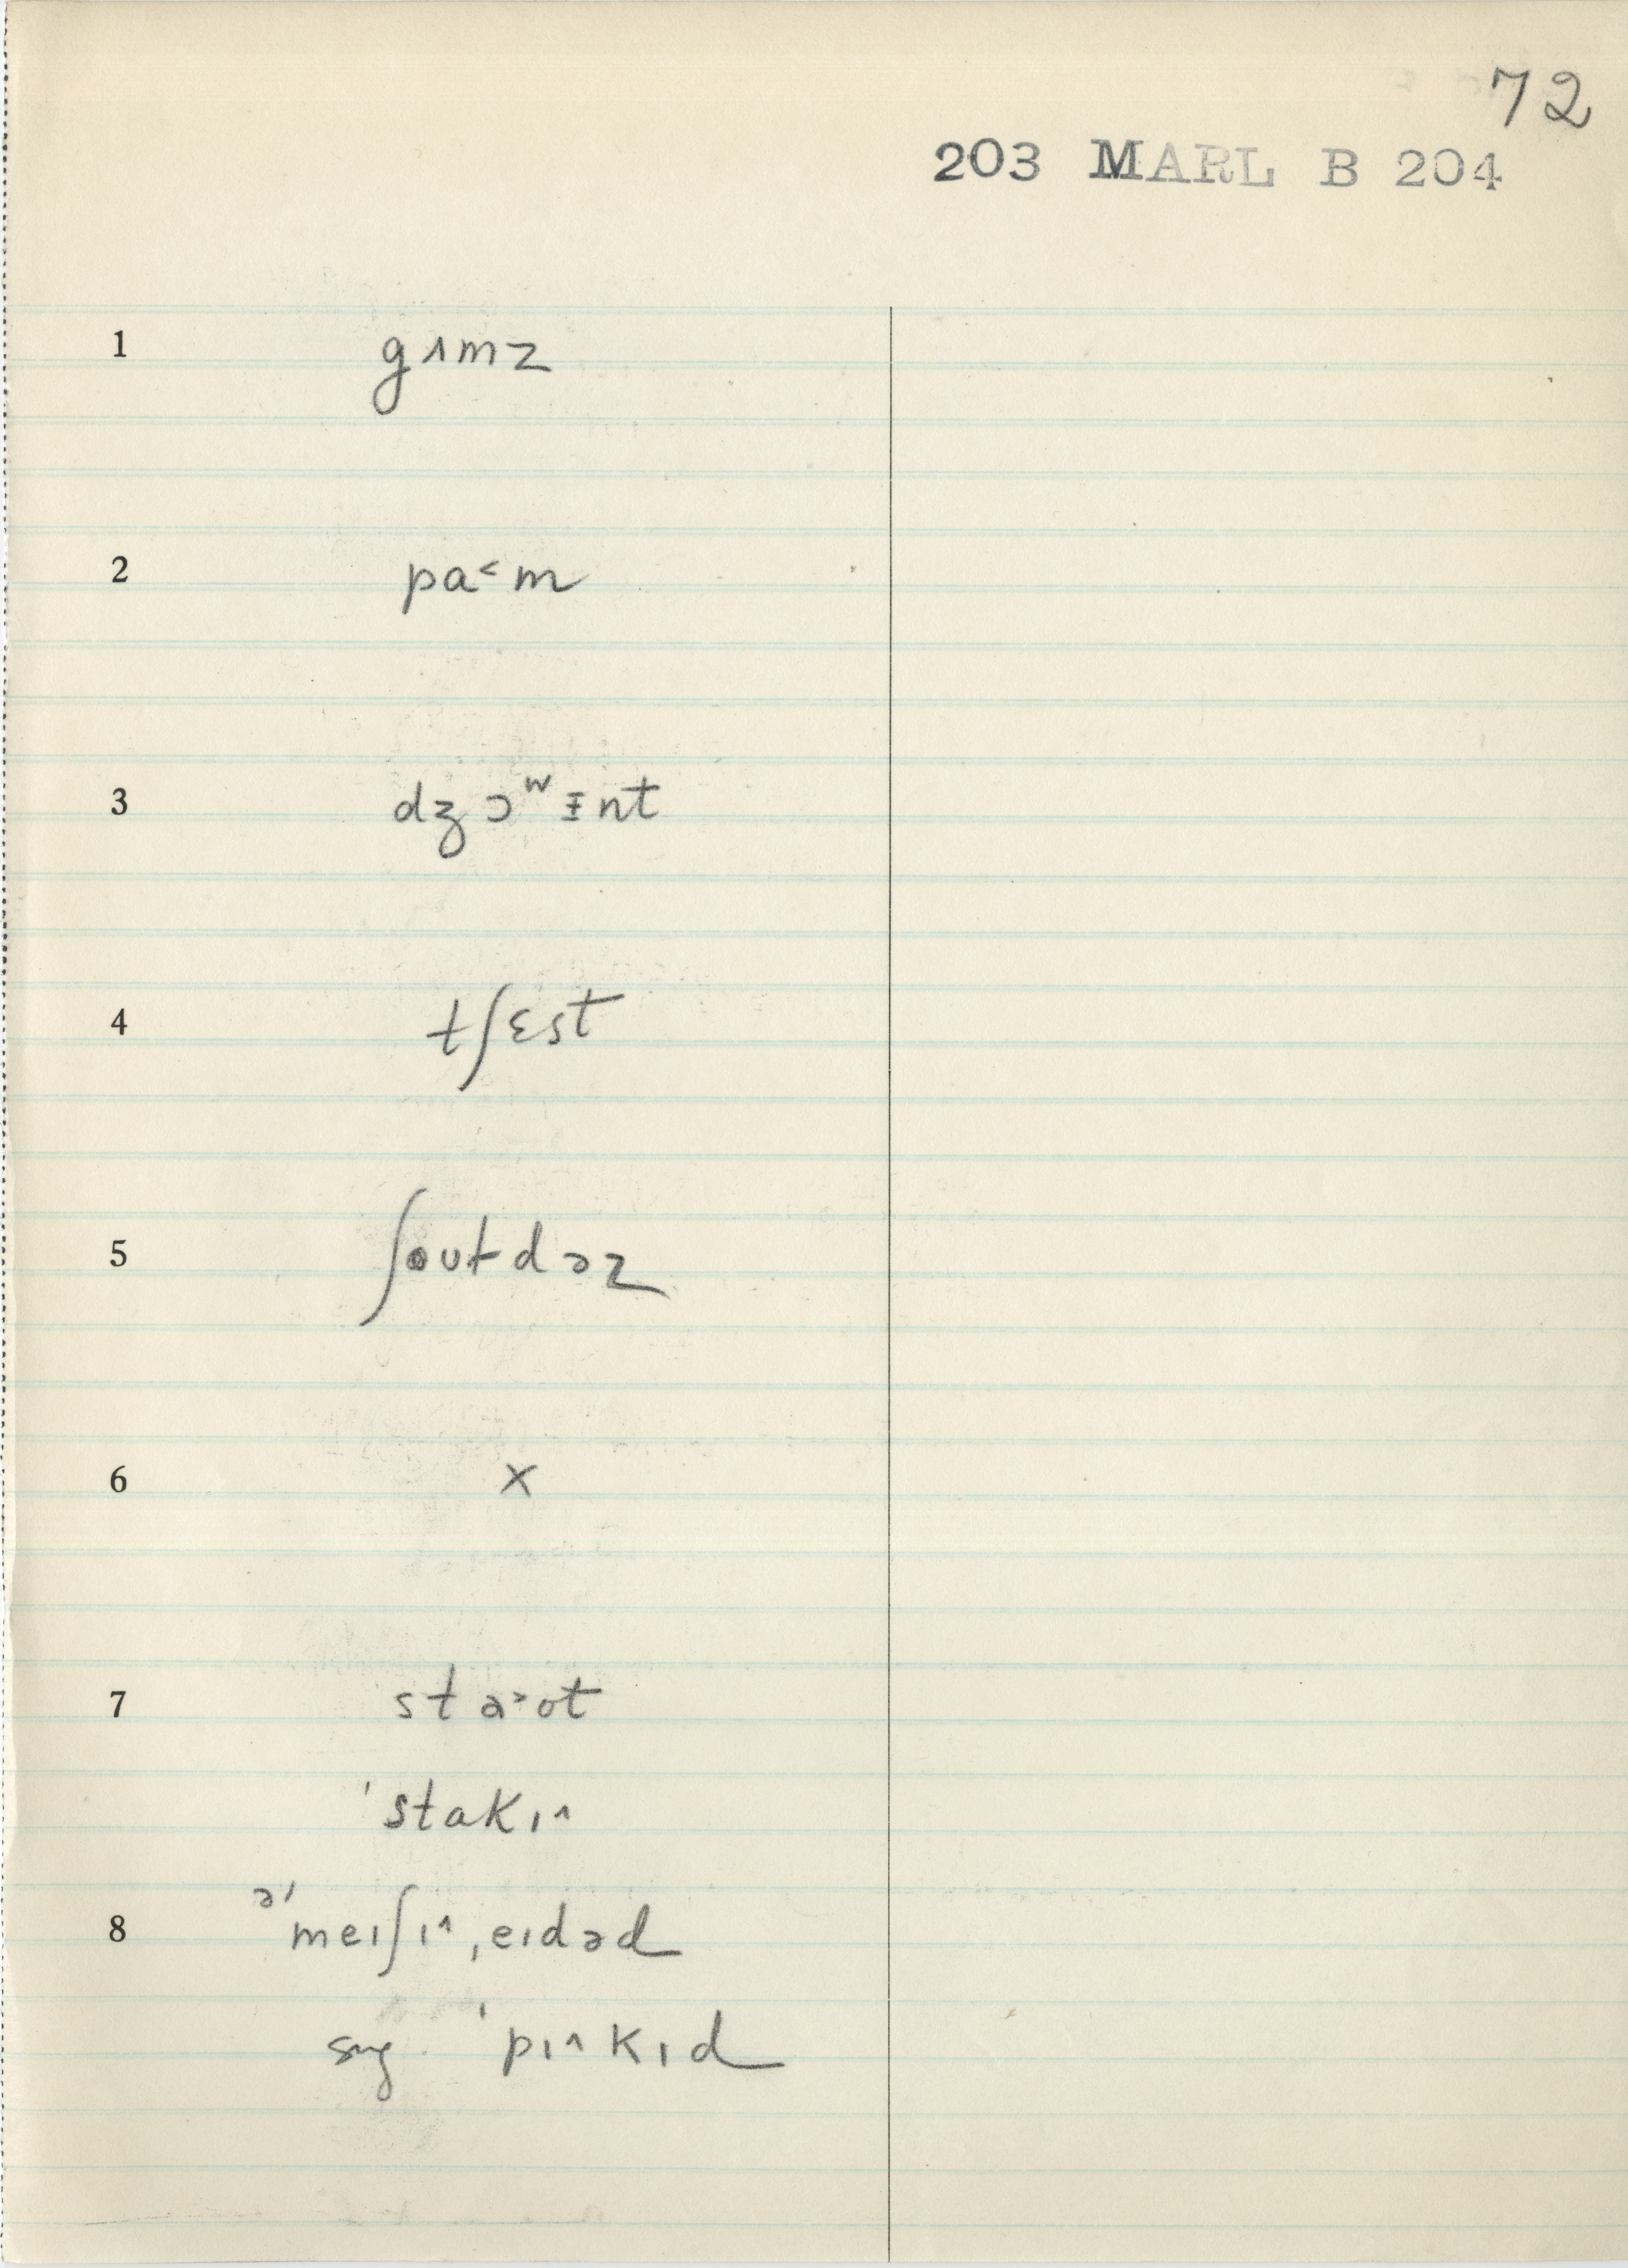 72
203 MARL B 204
1 gʌmz
2 pa˂m
3 dʒɔʷɪ̵nt
4 tʃɛst
5 ʃoʊldəz
6 x
7 sta˃ʊt
ˈstakɪ^
8 əˈmeɪʃɪ^ˌeɪdəd
sug. ˈpɪ^kɪd